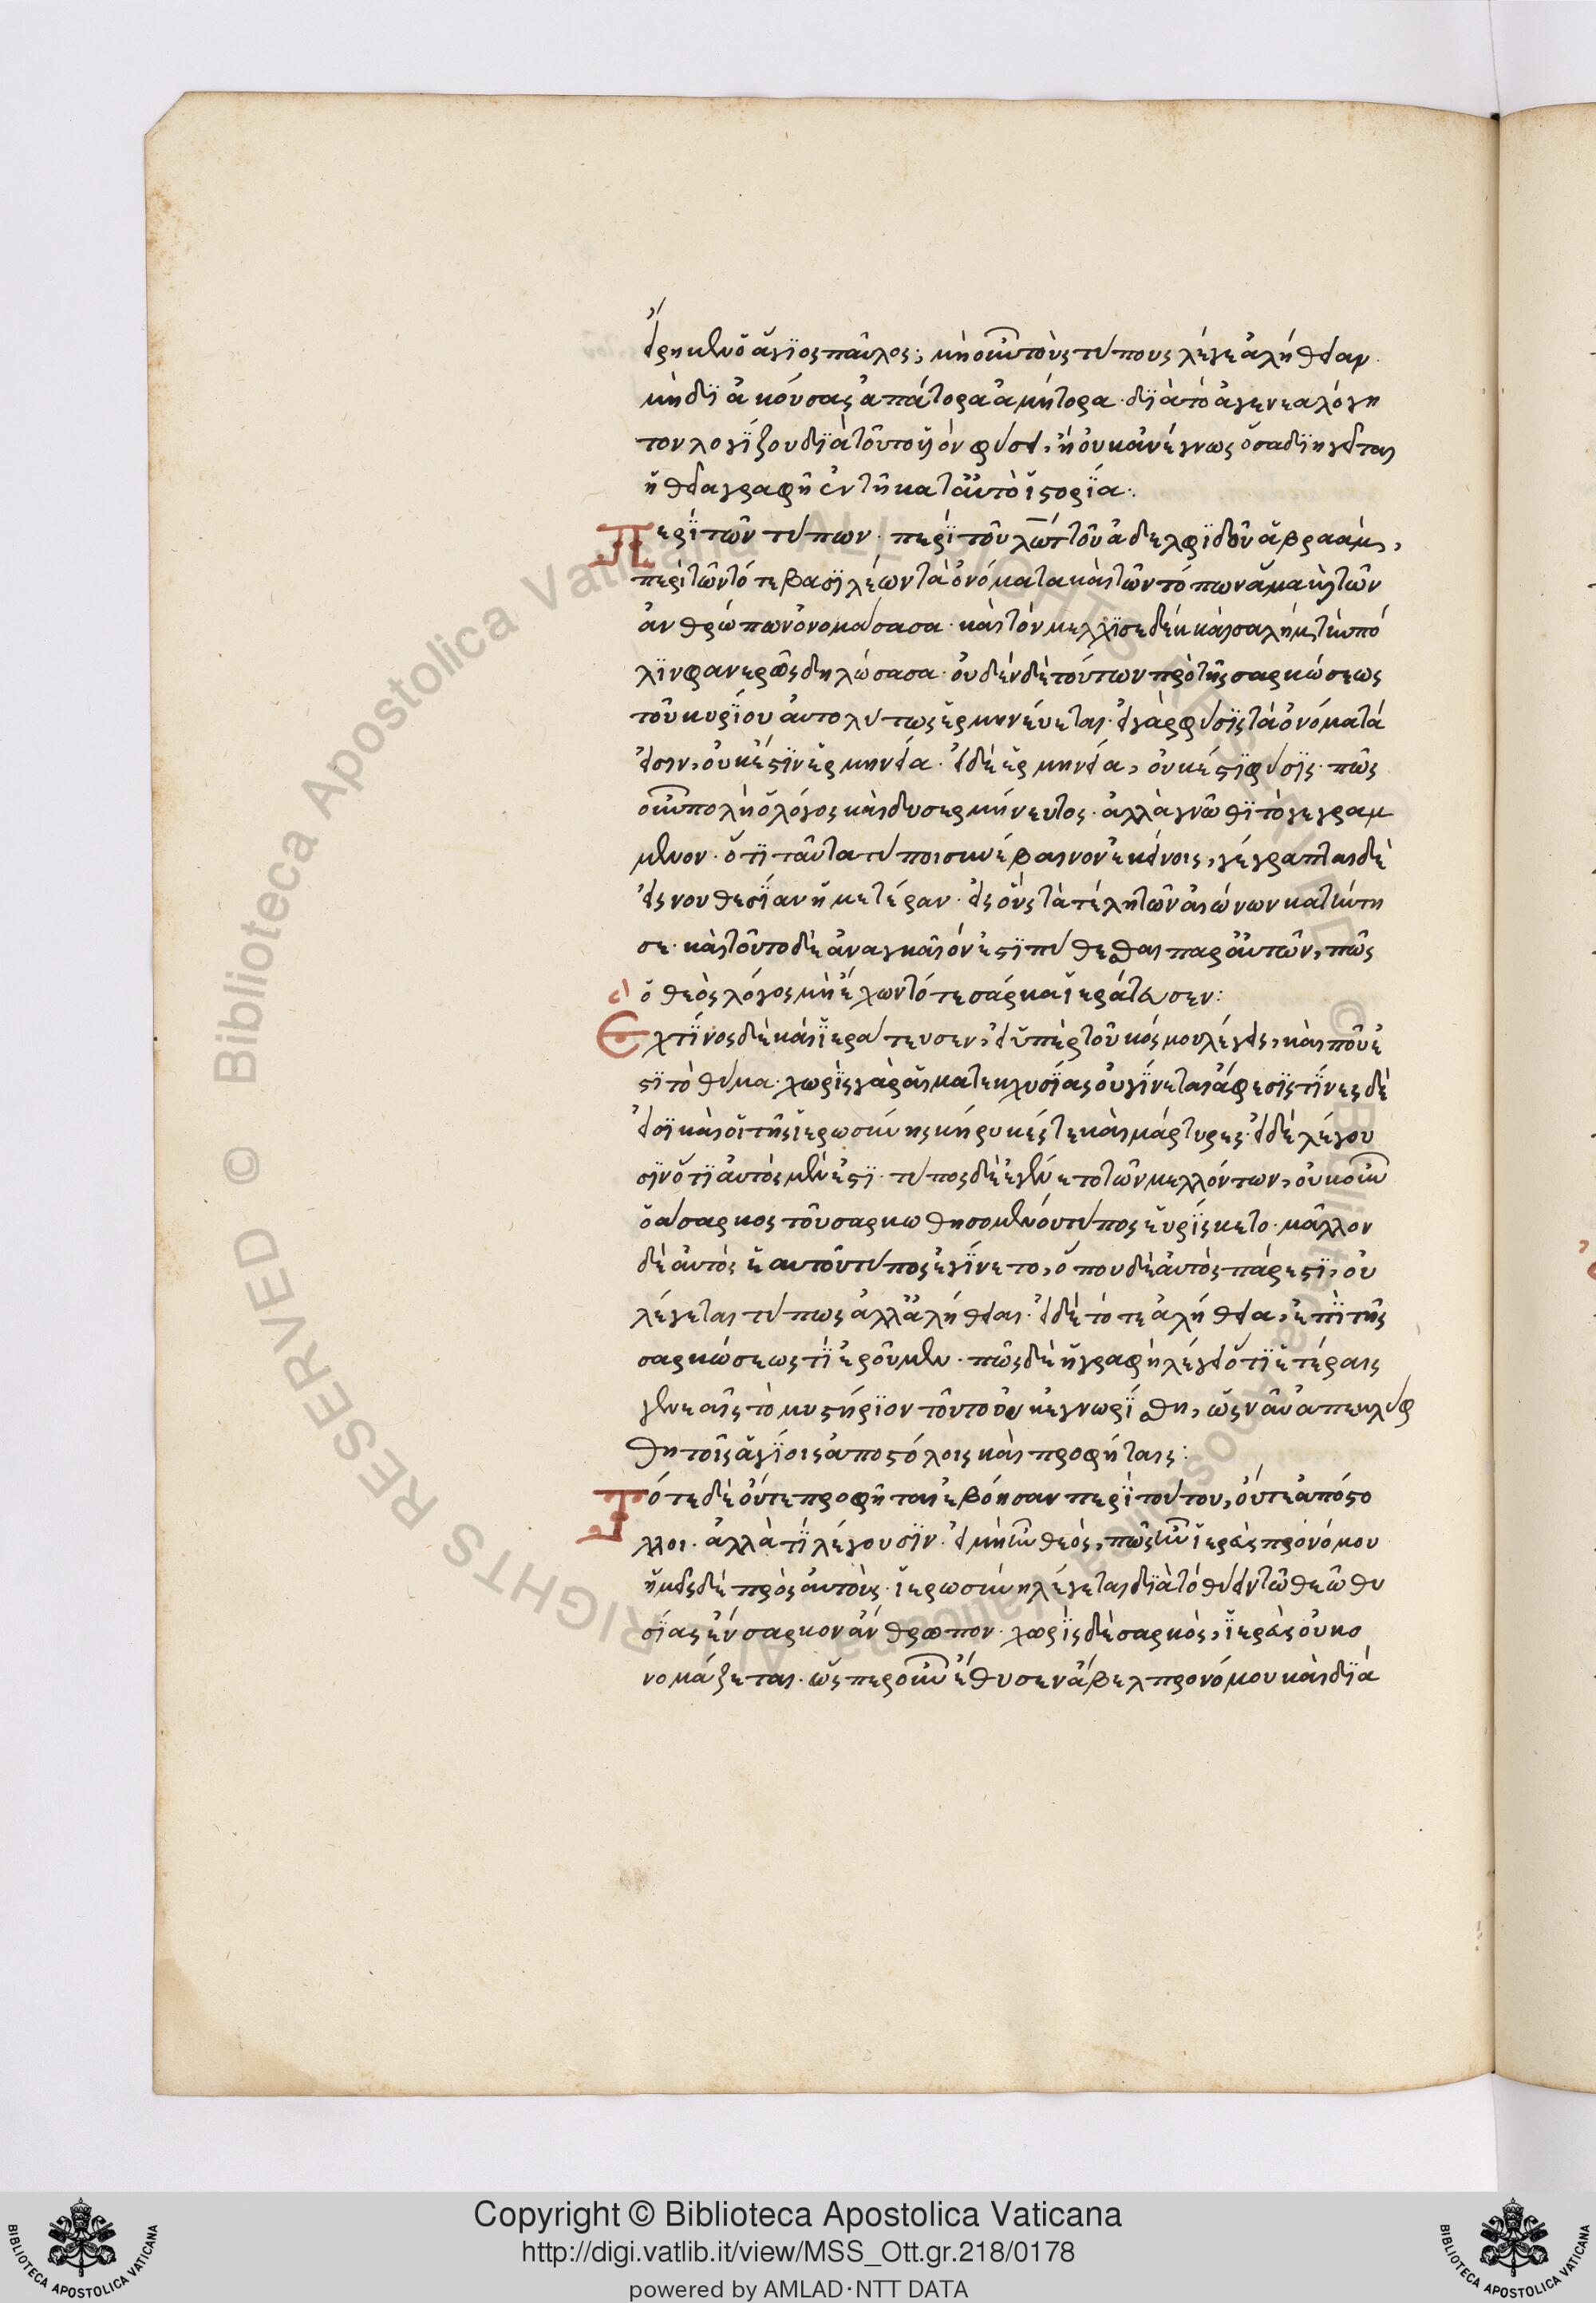 εἴρηκεν ὁ ἅγιος παῦλος; μὴ οὖν τοὺς τύπους λέγε ἀλήθειαν.
μὴ δὲ ἀκούσας ἀπάτορα ἀμήτορα· διὰ τὸ ἀγενεαλόγη
τον λογίζου διὰ τοῦτο υἱὸν φύσει, ἢ οὐκ ἀνέγνως ὅσα διηγεῖται
ἡ θεία γραφὴ ἐν τῇ κατ' αὐτὸ ἱστορία:
Περὶ τῶν τύπων· περὶ τοῦ λὼτ τοῦ ἀδελφιδοῦ ἁβραάμ,
περὶ τῶν τότε βασιλέων τὰ ὀνόματα καὶ τῶν τόπων ἅμα καὶ τῶν
ἀνθρώπων ὀνομάσασα· καὶ τὸν μελχισεδὲκ καὶ σαλὴμ τὴν πό
λιν φανερῶς δηλώσασα· οὐδὲν δὲ τούτων πρὸ τῆς σαρκώσεως
τοῦ κυρίου αὐτολύτως ἑρμηνεύεται· εἰ γὰρ φύσις τὰ ὀνόματά
εἰσιν, οὐκ ἔστιν ἑρμηνεία· εἰ δὲ ἑρμηνεία, οὐκ ἔστι φύσις· πῶς
οὖν πολὴ ὁ λόγος καὶ δυσερμήνευτος· ἀλλὰ γνῶθι τὸ γεγραμ
μένον· ὅτι ταῦτα τύποι συνέβαινον ἐκείνοις, γέγραπται δὲ
εἰς νουθεσίαν ἡμετέραν· εἰς οὓς τὰ τέλη τῶν αἰώνων κατήντη
σε· καὶ τοῦτο δὲ ἀναγκαῖόν ἐστι πυθέσθαι παρ' αὐτῶν, πῶς
ὁ θεὸς λόγος μὴ ἔχων τότε σάρκα ἱεράτευσεν:
Ἐχ τίνος δὲ καὶ ἱεράτευσεν, εἰ ὑπὲρ τοῦ κόσμου λέγεις, καὶ ποῦ ἐ
στι τὸ θύμα· χωρὶς γὰρ αἵματεκχυσίας οὐ γίνεται ἄφεσις τίνες δέ
εἰσι καὶ οἱ τῆς ἱερωσύνης κήρυκές τε καὶ μάρτυρες· εἰ δὲ λέγου
σιν ὅτι αὐτὸς μὲν ἐστι· τύπος δὲ ἐγένετο τῶν μελλόντων, οὐκοῦν
ὁ ἄσαρκος τοῦ σαρκωθησομένου τύπος εὑρίσκετο· μᾶλλον
δὲ αὐτὸς ἑαυτοῦ τύπος ἐγίνετο, ὅπου δὲ αὐτὸς πάρεστι, οὐ
λέγεται τύπως ἀλλ' ἀλήθειαι· εἰ δὲ τότε ἀλήθεια, ἐπὶ τῆς
σαρκώσεως τί ἐροῦμεν· πῶς δὲ ἡ γραφὴ λέγει ὅτι ἑτέραις
γενεαῖς τὸ μυστήριον τοῦτο οὐκ ἐγνωρίσθη, ὡς νῦν ἀπεκαλύφ
θη τοῖς ἁγίοις ἀποστόλοις καὶ προφήταις:
Τότε δὲ οὔτε προφῆται ἐβόησαν περὶ τούτου, οὔτε ἀπόστο
λλοι· ἀλλὰ τί λέγουσιν· εἰ μὴ ἦν θεὸς, πῶς ἦν ἱερεὺς πρὸ νόμου
ἡμεῖς δὲ πρὸς αὐτοὺς· ἱερωσύνη λέγεται διὰ τὸ θύειν τῶ θεῶ θυ
σίας ἔνσαρκον ἄνθρωπον· χωρὶς δὲ σαρκὸς, ἱερεὺς οὐκ ὀ
νομάζεται· ὥσπερ οὖν ἔθυσεν ἄβελ προνόμου καὶ διὰ
Copyright © Biblioteca Apostolica Vaticana
http://digi.vatlib.it/view/MSS_Ott.gr.218/0178
powered by AMLAD·NTT DATA